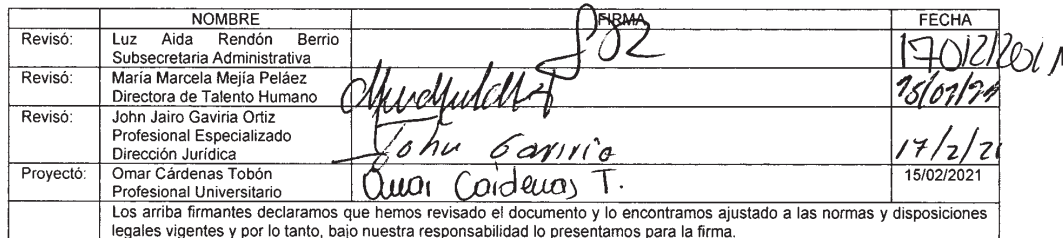 NOMBRE FIRMA FECHA
Revisó: Luz Aida Rendón Berrio
Subsecretaria Administrativa
Revisó: María Marcela Mejía Peláez
Directora de Talento Humano
Revisó: John Jairo Gaviria Ortiz
Profesional Especializado
Dirección Jurídica
John Gaviria 17/2/21
Proyectó: Omar Cárdenas Tobón
Profesional Universitario
Omar Cárdenas T. 15/02/2021
Los arriba firmantes declaramos que hemos revisado el documento y lo encontramos ajustado a las normas y disposiciones
legales vigentes y por lo tanto, bajo nuestra responsabilidad lo presentamos para la firma.